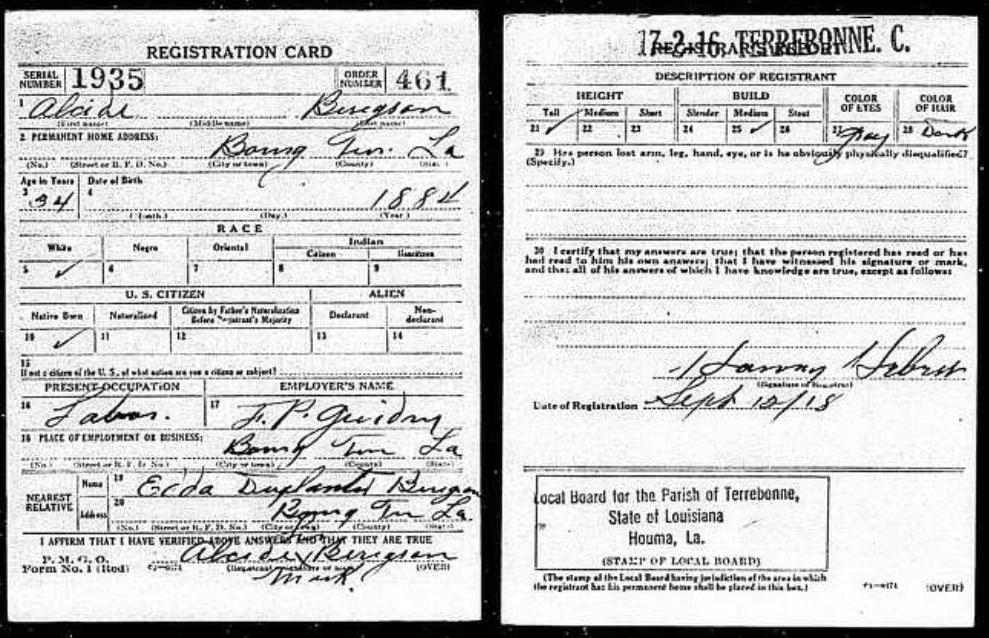 REGISTRATION CARD
SERIAL NUMBER 1935 ORDER NUMBER 461
1 Alcide Beregson
(First name) (Middle name) (Last name)
2 PERMANENT HOME ADDRESS:
Bourg Ter. La
(No.) (Street or R. F. D. No.) (City or town) (County) (State)
Age in Years Date of Birth
3 34 4 1884
(Month.) (Day.) (Year.)
RACE
White Negro Oriental Indian
Citizen Noncitizen
5 ✓ 6 7 8 9
U. S. CITIZEN ALIEN
Native Born Naturalized Citizen by Father's Naturalization Before Registrant's Majority Declarant Non-declarant
10 ✓ 11 12 13 14
15
If not a citizen of the U. S., of what nation are you a citizen or subject?
PRESENT OCCUPATION EMPLOYER'S NAME
16 Labor. 17 F. P. Guidry
18 PLACE OF EMPLOYMENT OR BUSINESS:
Bourg Ter La
(No.) (Street or R. F. D. No.) (City or town) (County) (State)
NEAREST RELATIVE Name 19 Duplantis
Address 20 Bourg Ter La.
(No.) (Street or R. F. D. No.) (City or town) (County) (State)
I AFFIRM THAT I HAVE VERIFIED ABOVE ANSWERS AND THAT THEY ARE TRUE
P. M. G. O.
Form No. 1 (Red) Alcide x Beregson
(Registrant's signature or mark) (OVER)
Mark
17-2-16, TERREBONNE. C.
REGISTRAR'S REPORT
DESCRIPTION OF REGISTRANT
HEIGHT BUILD COLOR OF EYES COLOR OF HAIR
Tall Medium Short Slender Medium Stout
21 ✓ 22 23 24 25 ✓ 26 27 Gray 28 Dark
29 Has person lost arm, leg, hand, eye, or is he obviously physically disqualified?
(Specify.)
30 I certify that my answers are true; that the person registered has read or has
had read to him his own answers; that I have witnessed his signature or mark,
and that all of his answers of which I have knowledge are true, except as follows:
(Signature of Registrar)
Date of Registration Sept 12/18
Local Board for the Parish of Terrebonne,
State of Louisiana
Houma, La.
(STAMP OF LOCAL BOARD)
(The stamp of the Local Board having jurisdiction of the area in which
the registrant has his permanent home shall be placed in this box.)
(OVER)